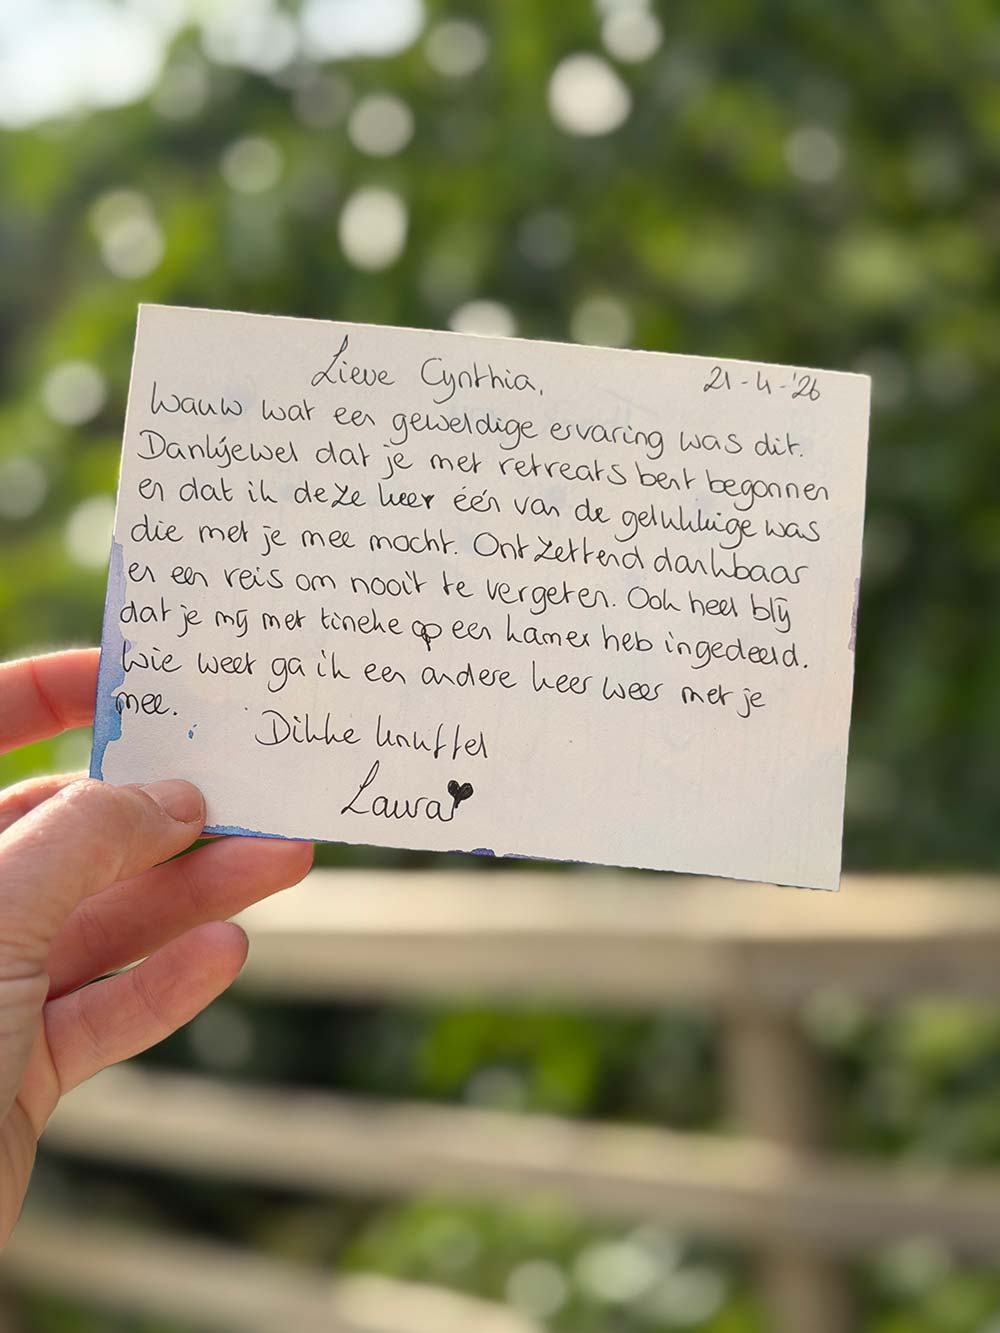 Lieve Cynthia,
21-4-'26
Wauw wat een geweldige ervaring was dit.
Dankjewel dat je met retreats bent begonnen
en dat ik deze keer één van de gelukkige was
die met je mee mocht. Ontzettend dankbaar
en een reis om nooit te vergeten. Ook heel blij
dat je mij met tineke op een kamer heb ingedeeld.
Wie weet ga ik een andere keer weer met je
mee.
Dikke knuffel
Laura